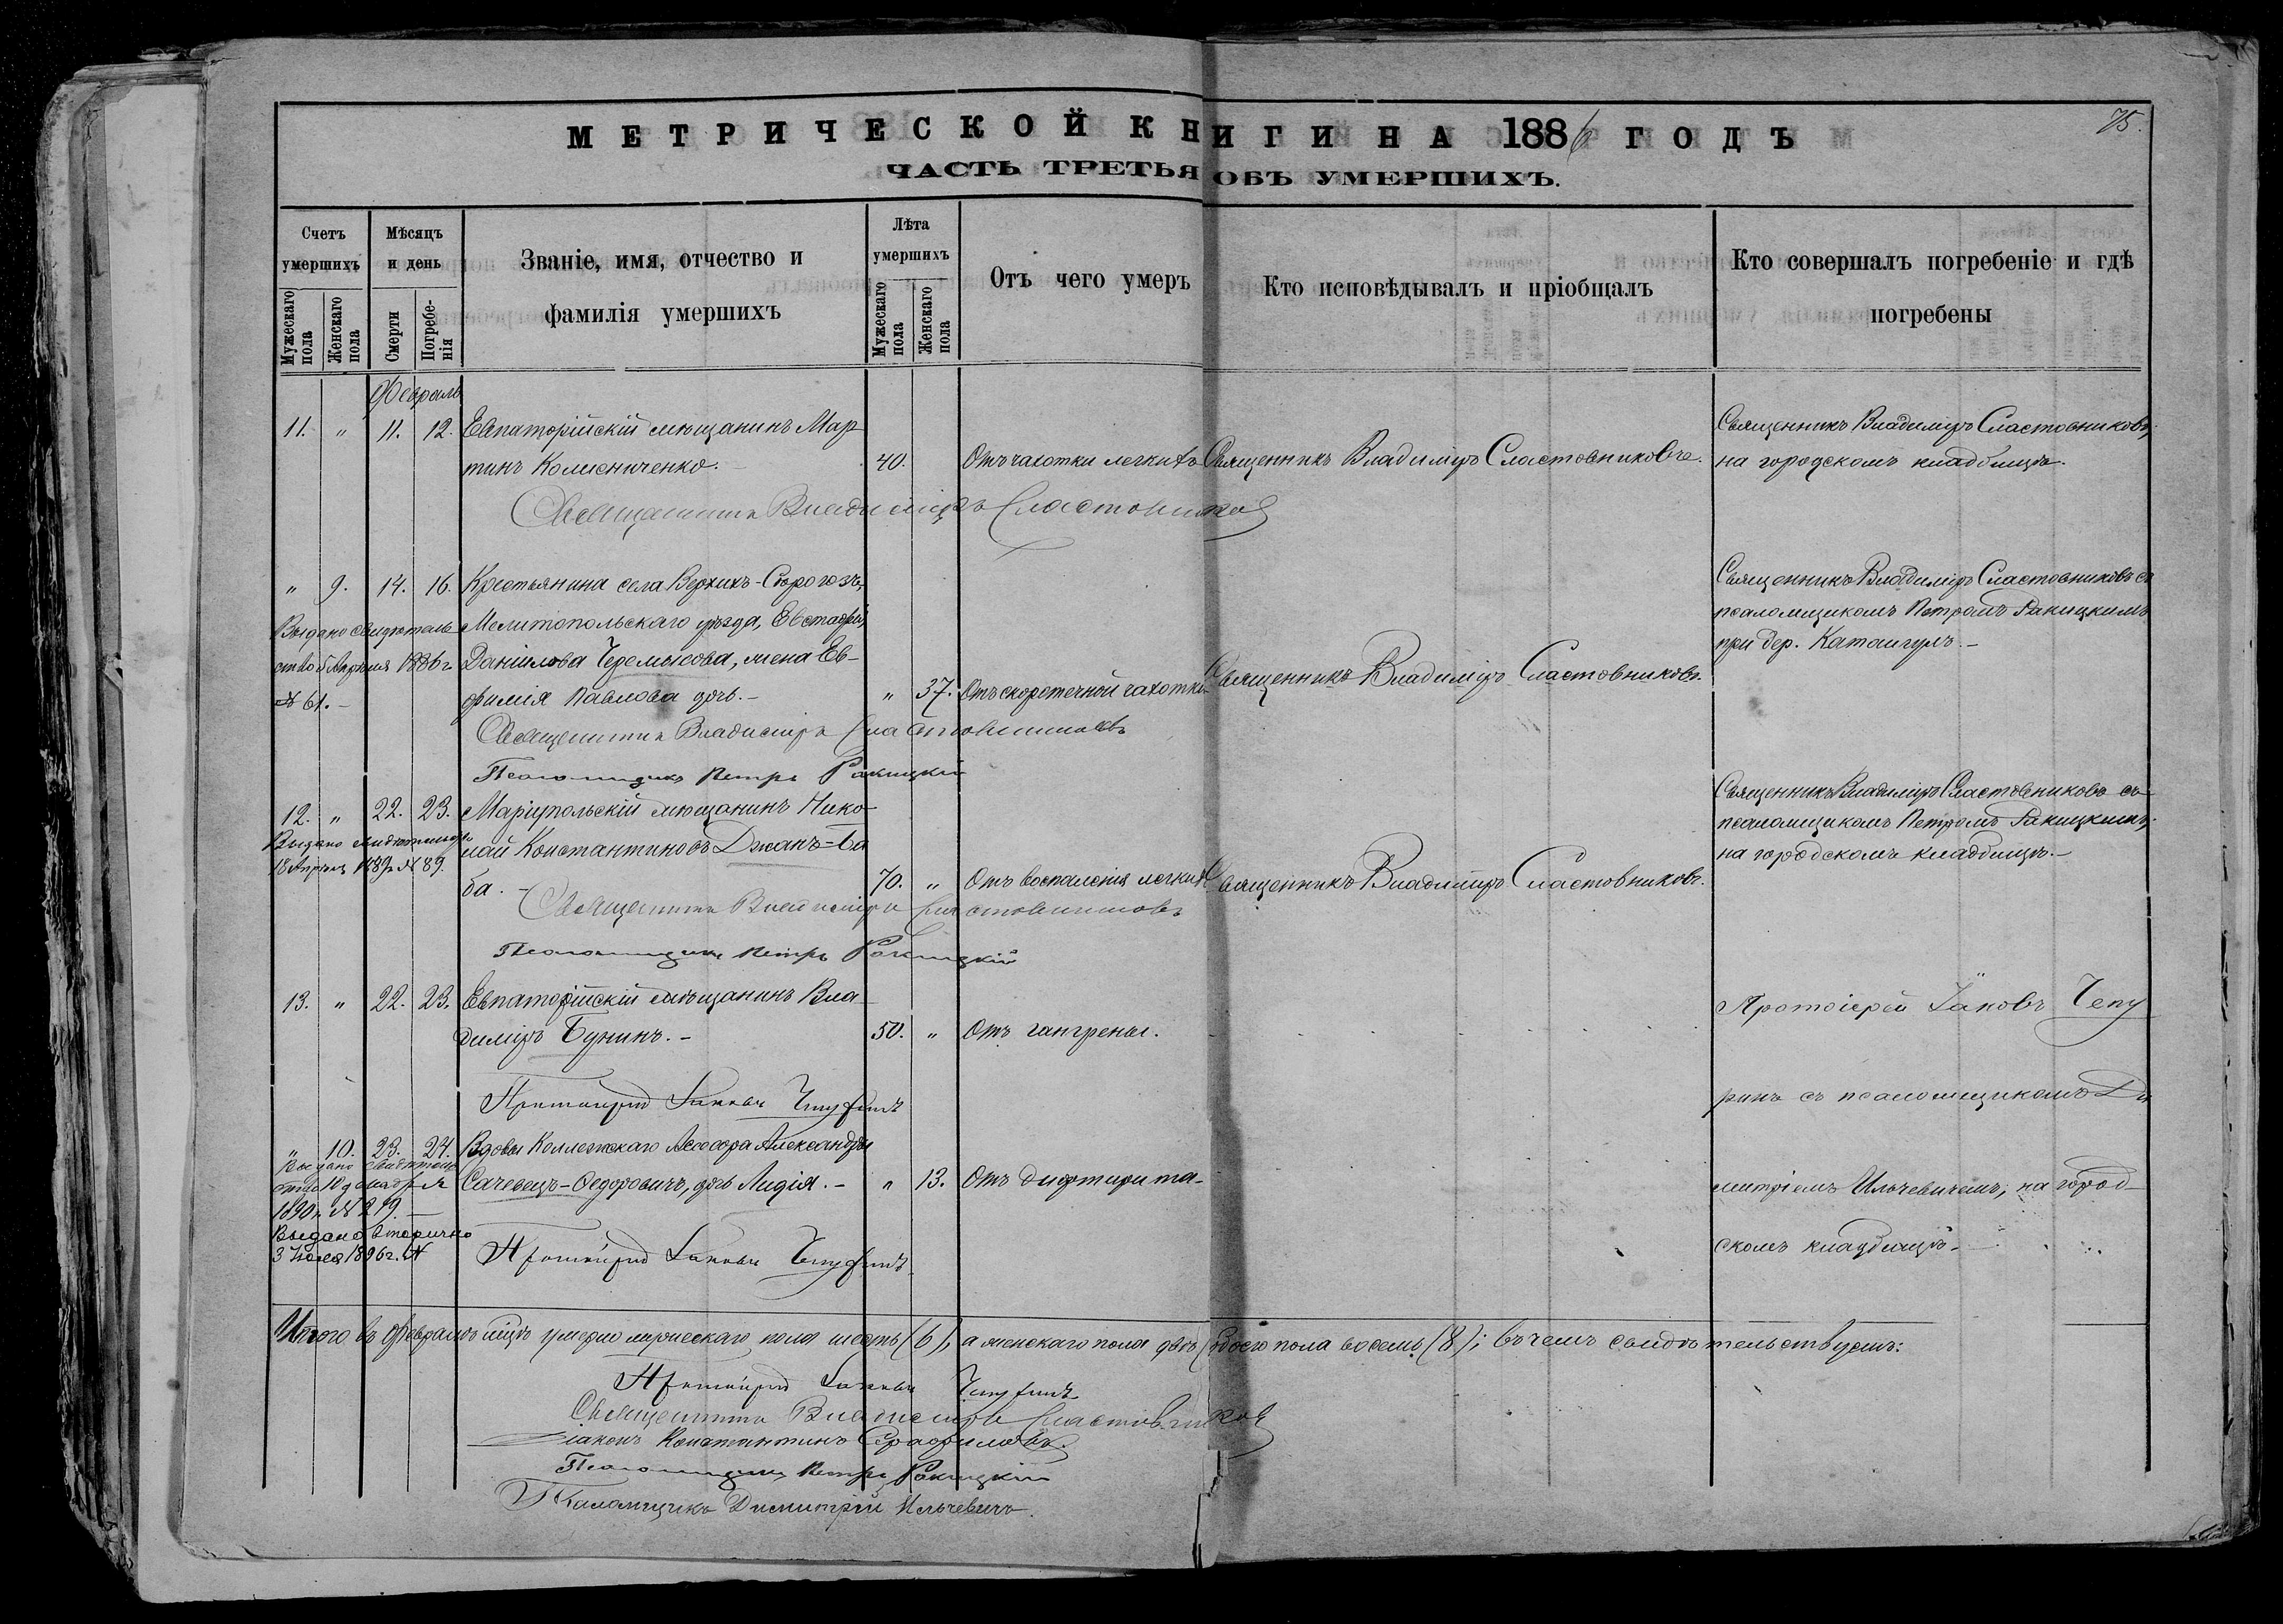 75.
МЕТРИЧЕСКОЙ КНИГИ НА 1886 ГОДЪ
ЧАСТЬ ТРЕТЬЯ ОБЪ УМЕРШИХЪ.
Счетъ умершихъ
Мужескаго пола
Женскаго пола
Мѣсяцъ и день
Смерти
Погребенія
Званіе, имя, отчество и
фамилія умершихъ
Лѣта умершихъ
Мужескаго пола
Женскаго пола
Отъ чего умеръ
Кто исповѣдывалъ и пріобщалъ
Кто совершалъ погребеніе и гдѣ
погребены
Февраль
11. " 11. 12. Евпаторійскій мѣщанинъ Мар
тинъ Колисниченко. 40. Отъ чахотки легкихъ Священникъ Владиміръ Сластовниковъ.
Священникъ Владиміръ Сластовниковъ;
на городскомъ кладбищѣ.
Священникъ Владиміръ Сластовниковъ
" 9. 14. 16. Крестьянина села Верхихъ-Сѣрогозъ,
Мелитопольскаго уѣзда, Евстафія
Даніилова Черемысова, жена Ев-
фимія Павлова дочь.- " 37. Отъ скоротечной чахотки Священникъ Владиміръ Сластовниковъ.
Выдано свидѣтель
ство 5 Апрѣля 1886 г.
№ 61.-
Священникъ Владиміръ Сластовниковъ съ
псаломщикомъ Петромъ Ракицкимъ
при дер. Катангулъ.-
Священникъ Владиміръ Сластовниковъ
Псаломщикъ Петръ Ракицкій
12. " 22. 23. Маріупольскій мѣщанинъ Нико-
лай Константиновъ Джанъ-ба
ба.- 70. " Отъ воспаленія легкихъ Священникъ Владиміръ Сластовниковъ.
Выдано свидѣтельство
18 Апрѣля 1889 г. № 89.
Священникъ Владиміръ Сластовниковъ съ
псаломщикомъ Петромъ Ракицкимъ;
на городскомъ кладбищѣ.-
Священникъ Владиміръ Сластовниковъ
Псаломщикъ Петръ Ракицкій
13. " 22. 23. Евпаторійскій мѣщанинъ Вла
диміръ Бунинъ.- 50. " Отъ гангрены.
Протоіерей Іаковъ Чепу
ринъ съ псаломщикомъ Ди
митріемъ Ильчевичемъ, на город-
скомъ кладбищѣ.
Протоіерей Іаковъ Чепуринъ
" 10. 23. 24. Вдовы Коллежскаго Ассесора Александры
Сачевецъ-Федоровичъ, дочь Лидія.- " 13. Отъ дифтирита-
Выдано свидѣтель
ство 10 декабря
1890 г. № 219.
Выдано вторично
3 Іюля 1896 г. №
Протоіерей Іаковъ Чепуринъ
Итого въ Февралѣ мѣцѣ умерло мужескаго пола шесть (6), а женскаго пола двѣ обоего пола восемь (8); въ чемъ свидѣтельствуемъ:
Протоіерей Іаковъ Чепуринъ
Священникъ Владиміръ Сластовниковъ
Діаконъ Константинъ Серафимовъ.
Псаломщикъ Петръ Ракицкій
Псаломщикъ Димитрій Ильчевичъ.